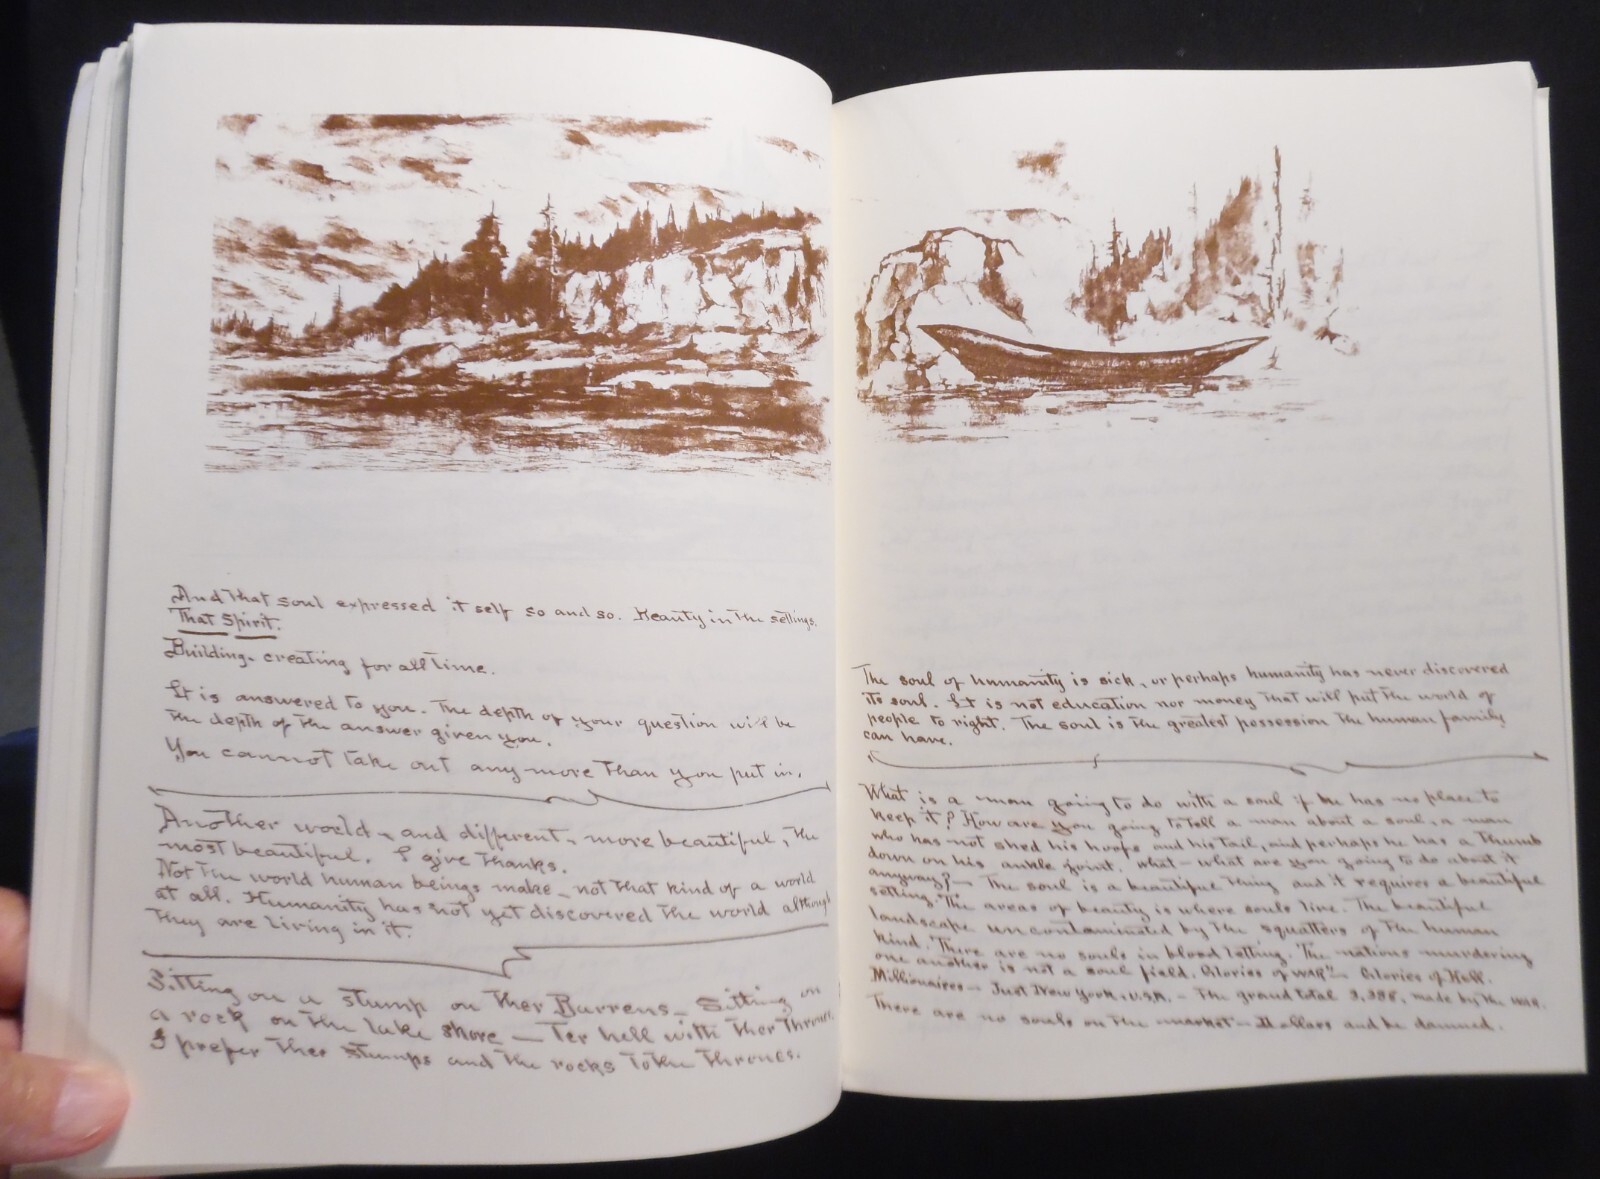 And that soul expressed it self so and so. Beauty in the settings.
That Spirit.
Building - creating for all time.
It is answered to you. The depth of your question will be
the depth of the answer given you.
You cannot take out any more than you put in.
Another world - and different - more beautiful, the
most beautiful. I give thanks.
Not the world human beings make - not that kind of a world
at all. Humanity has not yet discovered the world although
they are living in it.
Sitting on a stump on ther Barrens - Sitting on
a rock on the lake shore — Ter hell with ther thrones.
I prefer ther stumps and the rocks to the thrones.
The soul of humanity is sick, or perhaps humanity has never discovered
its soul. It is not education nor money that will put the world of
people to right. The soul is the greatest possession the human family
can have.
What is a man going to do with a soul if he has no place to
keep it? How are you going to tell a man about a soul, a man
who has not shed his hoofs and his tail, and perhaps he has a thumb
down on his ankle joint. What - what are you going to do about it
anyway? — The soul is a beautiful thing and it requires a beautiful
setting. The areas of beauty is where souls live. The beautiful
landscape uncontaminated by the squatters of the human
kind. There are no souls in blood letting. The nations murdering
one another is not a soul field. Glories of WAR - Glories of Hell.
Millionaires - Just New York, U.S.A. - The grand total made by the WAR.
There are no souls on the market - Dollars and be damned.